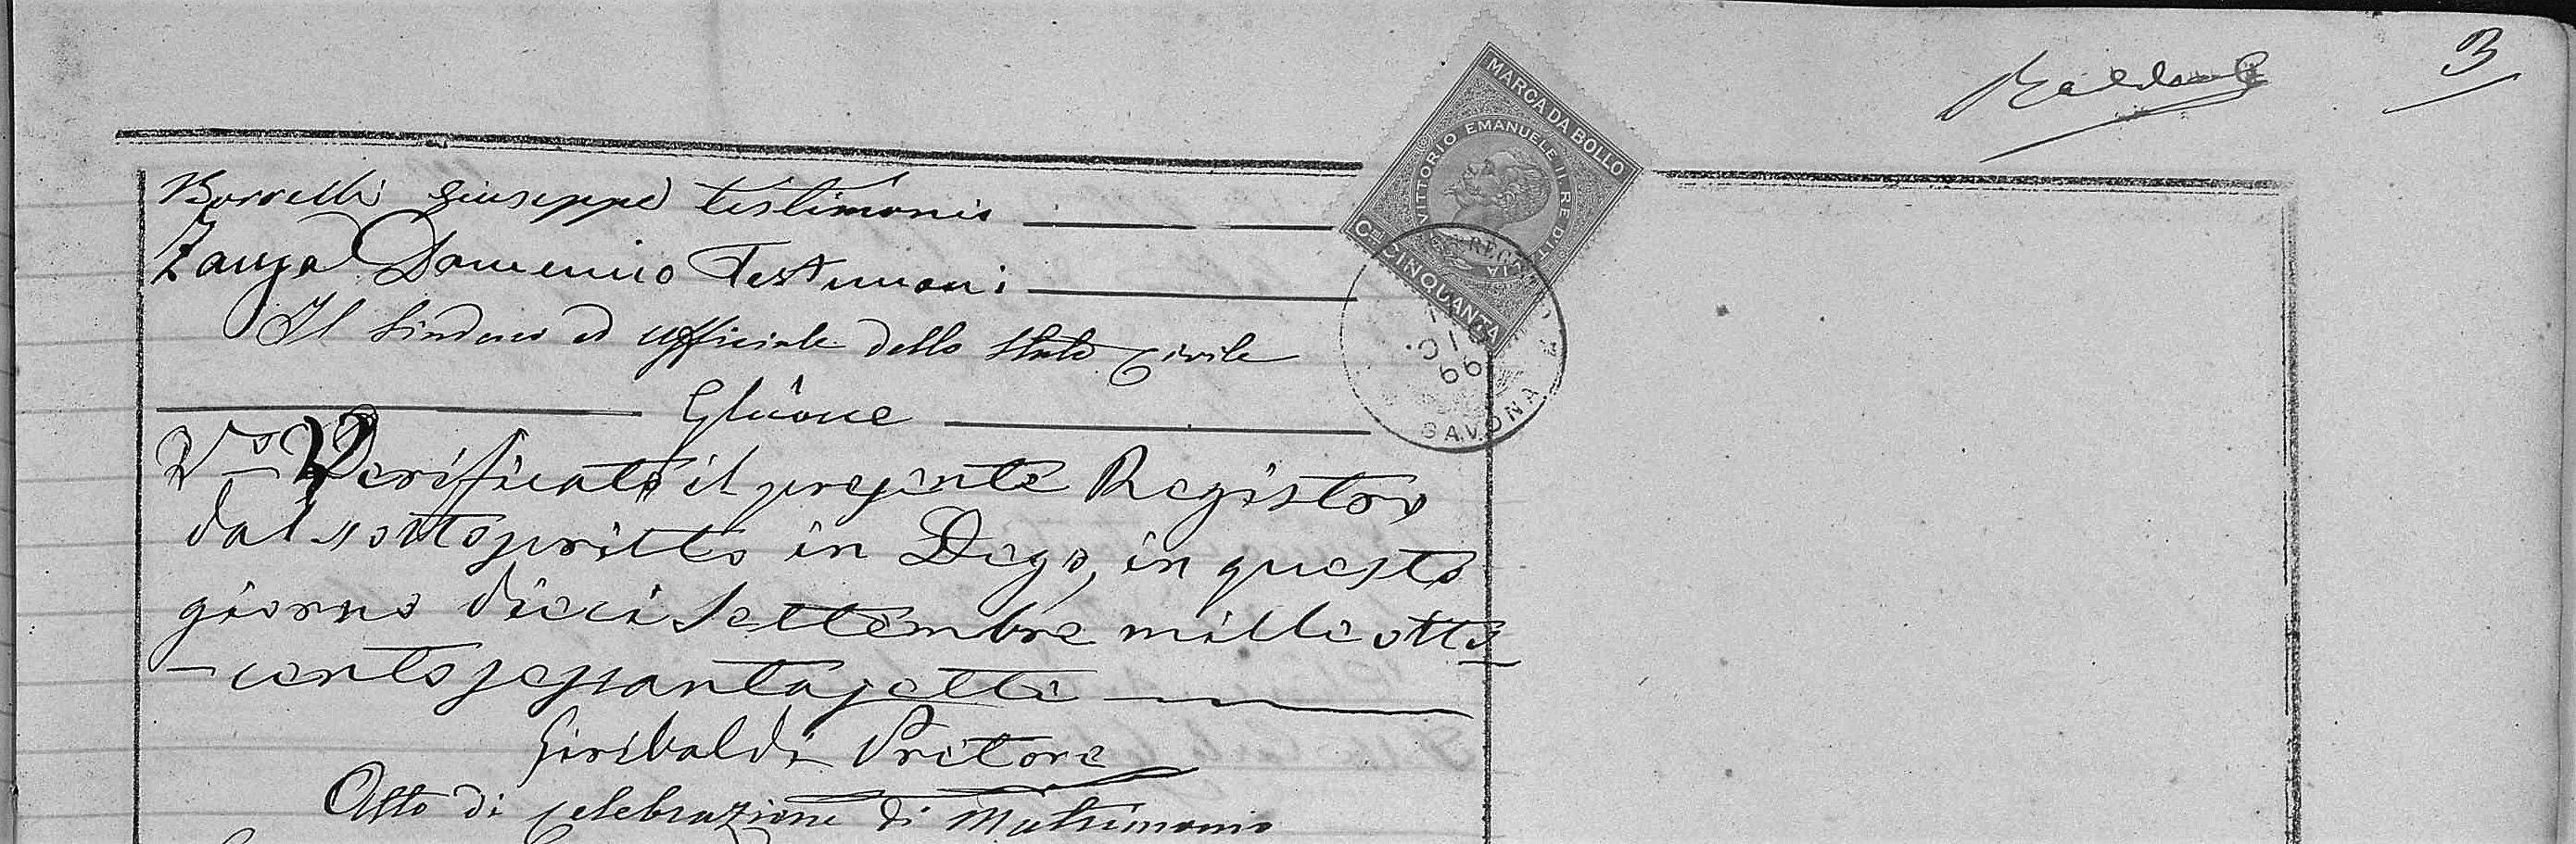 3
MARCA DA BOLLO
VITTORIO EMANUELE II RE D'ITALIA
CMI CINQUANTA
DIC.
66
SAVONA
Borrelli Giuseppe testimonio
Zanga Domenico Testimoni
Il Sindaco ed Ufficiale dello Stato Civile
Vo Verificato il presente Registro
dal sottoscritto in Dego, in questo
giorno dieci Settembre mille otto
centosessantasette
Giribaldi Pretore
Atto di celebrazione di Matrimonio